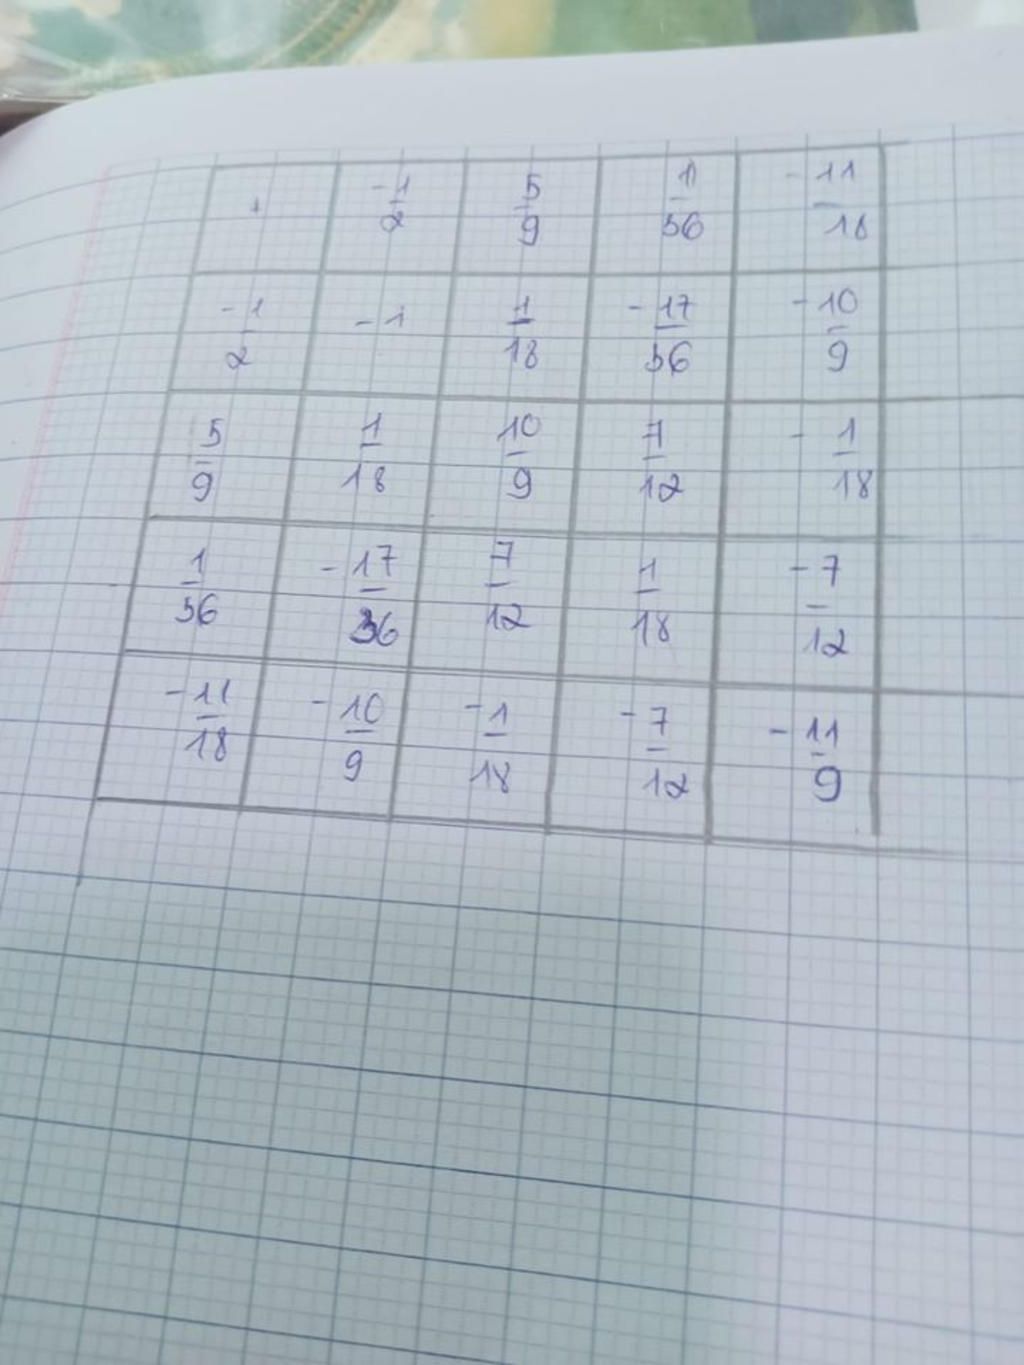 + -1/2 5/9 1/36 -11/18
-1/2 -1 1/18 -17/36 -10/9
5/9 1/18 10/9 7/12 -1/18
1/36 -17/36 7/12 1/18 -7/12
-11/18 -10/9 -1/18 -7/12 -11/9